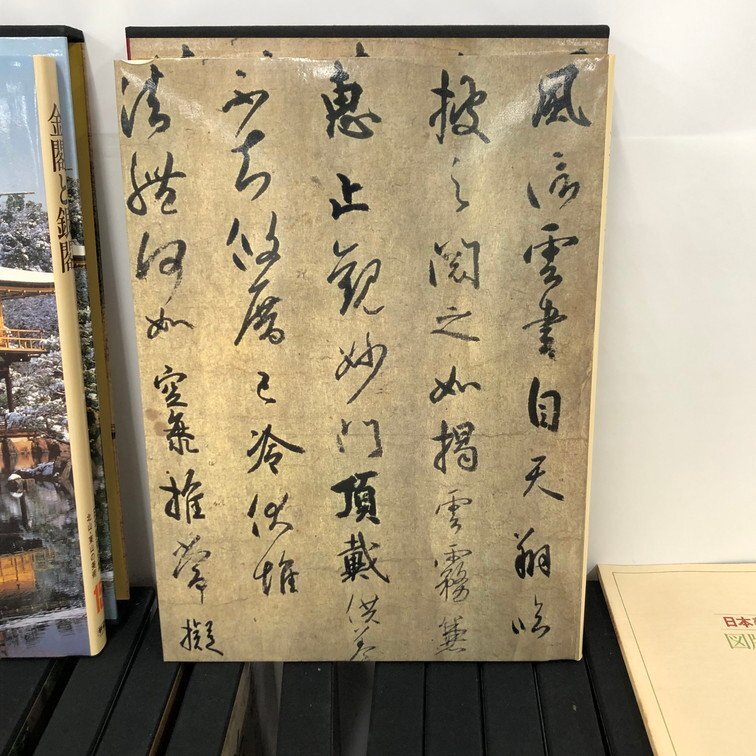 風信雲書自天翔臨
披之閲之如揭雲霧兼
惠止觀妙門頂戴供養
不知攸厝已冷伏惟
法體何如空海推常擬
金閣と銀閣
日本
図